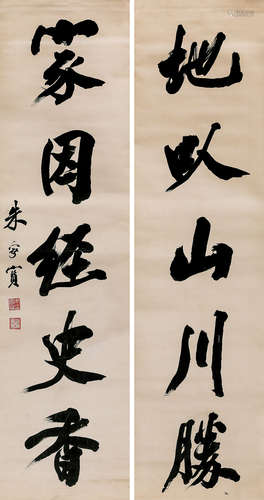 地以山川勝
家因經史香
朱家寶